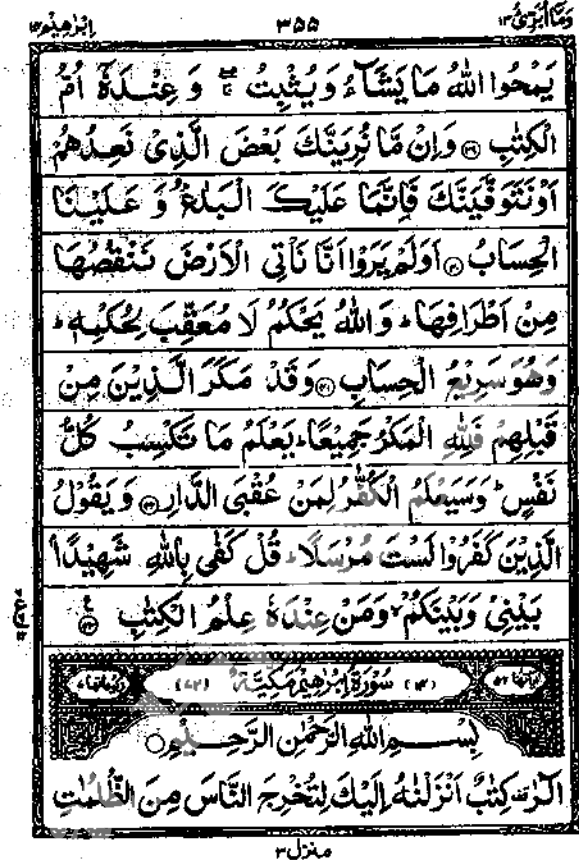 وَمَآ اُبَرِّئُ ١٣ ٣٥٥ اِبْرٰهِيْم ١٤
يَمْحُوا اللّٰهُ مَا يَشَآءُ وَيُثْبِتُ ۚۖ وَ عِنْدَهٗٓ اُمُّ
الْكِتٰبِ ﴿٣٩﴾ وَاِنْ مَّا نُرِيَنَّكَ بَعْضَ الَّذِىْ نَعِدُهُمْ
اَوْ نَتَوَفَّيَنَّكَ فَاِنَّمَا عَلَيْكَ الْبَلٰغُ وَ عَلَيْنَا
الْحِسَابُ ﴿٤٠﴾ اَوَلَمْ يَرَوْا اَنَّا نَاْتِى الْاَرْضَ نَنْقُصُهَا
مِنْ اَطْرَافِهَا ؕ وَاللّٰهُ يَحْكُمُ لَا مُعَقِّبَ لِحُكْمِهٖ ؕ
وَهُوَ سَرِيْعُ الْحِسَابِ ﴿٤١﴾ وَقَدْ مَكَرَ الَّذِيْنَ مِنْ
قَبْلِهِمْ فَلِلّٰهِ الْمَكْرُ جَمِيْعًا ؕ يَعْلَمُ مَا تَكْسِبُ كُلُّ
نَفْسٍ ؕ وَسَيَعْلَمُ الْكُفّٰرُ لِمَنْ عُقْبَى الدَّارِ ﴿٤٢﴾ وَ يَقُوْلُ
الَّذِيْنَ كَفَرُوْا لَسْتَ مُرْسَلًا ؕ قُلْ كَفٰى بِاللّٰهِ شَهِيْدًاۢ
بَيْنِىْ وَبَيْنَكُمْ ۙ وَمَنْ عِنْدَهٗ عِلْمُ الْكِتٰبِ ﴿٤٣﴾ ع
اٰيَاتُهَا ٥٢ (١٤) سُوْرَةُ اِبْرٰهِيْمَ مَكِّيَّةٌ (٧٢) رُكُوْعَاتُهَا ٧
بِسْمِ اللّٰهِ الرَّحْمٰنِ الرَّحِيْمِ
الٓرٰ كِتٰبٌ اَنْزَلْنٰهُ اِلَيْكَ لِتُخْرِجَ النَّاسَ مِنَ الظُّلُمٰتِ
منزل ٣